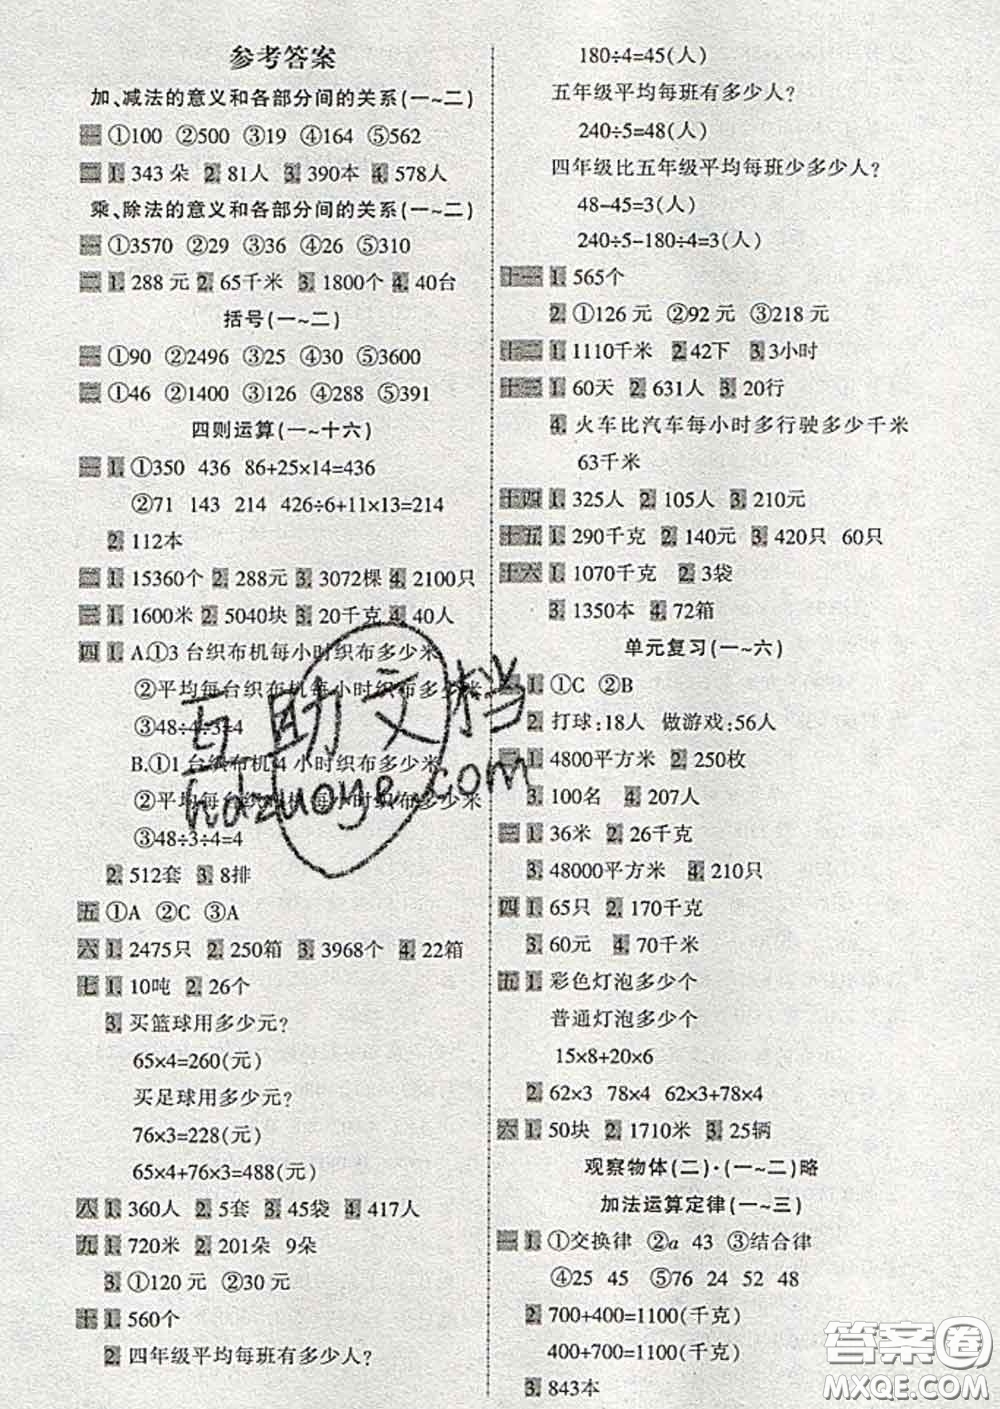 参考答案
加、减法的意义和各部分间的关系(一~二)
一 ①100 ②500 ③19 ④164 ⑤562
二 1. 343 朵 2. 81人 3. 390本 4. 578人
乘、除法的意义和各部分间的关系(一~二)
一 ①3570 ②29 ③36 ④26 ⑤310
二 1. 288 元 2. 65千米 3. 1800个 4. 40台
括号(一~二)
一 ①90 ②2496 ③25 ④30 ⑤3600
二 ①46 ②1400 ③126 ④288 ⑤391
四则运算(一~十六)
一 1. ①350 436 86+25×14=436
②71 143 214 426÷6+11×13=214
2. 112本
二 1. 15360个 2. 288元 3. 3072棵 4. 2100只
三 1. 1600米 2. 5040块 3. 20千克 4. 40人
四 1. A.①3 台织布机每小时织布多少米
②平均每台织布机每小时织布多少米
③48÷4÷3=4
B.①1 台织布机 4 小时织布多少米
②平均每台织布机每小时织布多少米
③48÷3÷4=4
2. 512套 3. 8排
五 ①A ②C ③A
六 1. 2475只 2. 250箱 3. 3968个 4. 22箱
七 1. 10吨 2. 26个
3. 买篮球用多少元?
65×4=260(元)
买足球用多少元?
76×3=228(元)
65×4+76×3=488(元)
八 1. 360人 2. 5套 3. 45袋 4. 417人
九 1. 720米 2. 201朵 9朵
3. ①120 元 ②30元
十 1. 560个
2. 四年级平均每班有多少人?
180÷4=45(人)
五年级平均每班有多少人?
240÷5=48(人)
四年级比五年级平均每班少多少人?
48-45=3(人)
240÷5-180÷4=3(人)
十一 1. 565个
2. ①126 元 ②92 元 ③218 元
十二 1. 1110千米 2. 42下 3. 3小时
十三 1. 60天 2. 631人 3. 20行
4. 火车比汽车每小时多行驶多少千米
63千米
十四 1. 325人 2. 105人 3. 210元
十五 1. 290千克 2. 140元 3. 420只 60只
十六 1. 1070千克 2. 3袋
3. 1350本 4. 72箱
单元复习(一~六)
一 1. ①C ②B
2. 打球:18人 做游戏:56人
二 1. 4800平方米 2. 250枚
3. 100名 4. 207人
三 1. 36米 2. 26千克
3. 48000平方米 4. 210只
四 1. 65只 2. 170千克
3. 60元 4. 70千米
五 1. 彩色灯泡多少个
普通灯泡多少个
15×8+20×6
2. 62×3 78×4 62×3+78×4
六 1. 50块 2. 1710米 3. 25辆
观察物体(二)·(一~二)略
加法运算定律(一~三)
一 1. ①交换律 ②a 43 ③结合律
④25 45 ⑤76 24 52 48
2. 700+400=1100(千克)
400+700=1100(千克)
3. 843本
互助文档
hdzuoye.com
答案圈
MXQE.COM